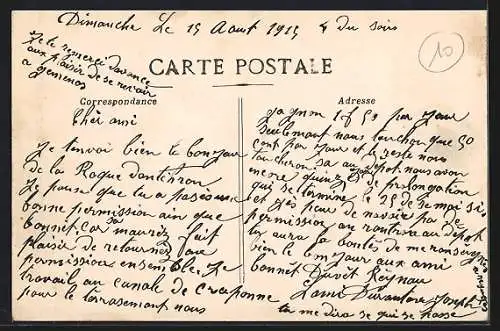 Dimanche Le 15 Aout 1915 4 du soir
Je te remerci davance
aux plaisir de se revoir
a gemenos
10
CARTE POSTALE
Correspondance
Adresse
Chèr ami
Je tenvoi bien le bonjour
de la Roque dantéron
Je pense que tu a passé une
bonne permission ain que
bonnet Car maurez fait
plaisir de retourner au
permission ensemble. Je
travail au canale de craponne
pour le terrasement nous
gagnon 1f50 par jour
Seulement nous touchon que 50
cent par jour et le reste nous
toucheron sa au depot nous avon
encore quinze jour de prolongation
qui se termine le 25 de se moi si
et jes peur de navoir pas de
permission au routrau au depot
tu aura la bontés de me renseigner
bien le bonjour aux ami
bonnet Duvet Reynau
Lami Durantore Joseph
tu me dira se qui se passe